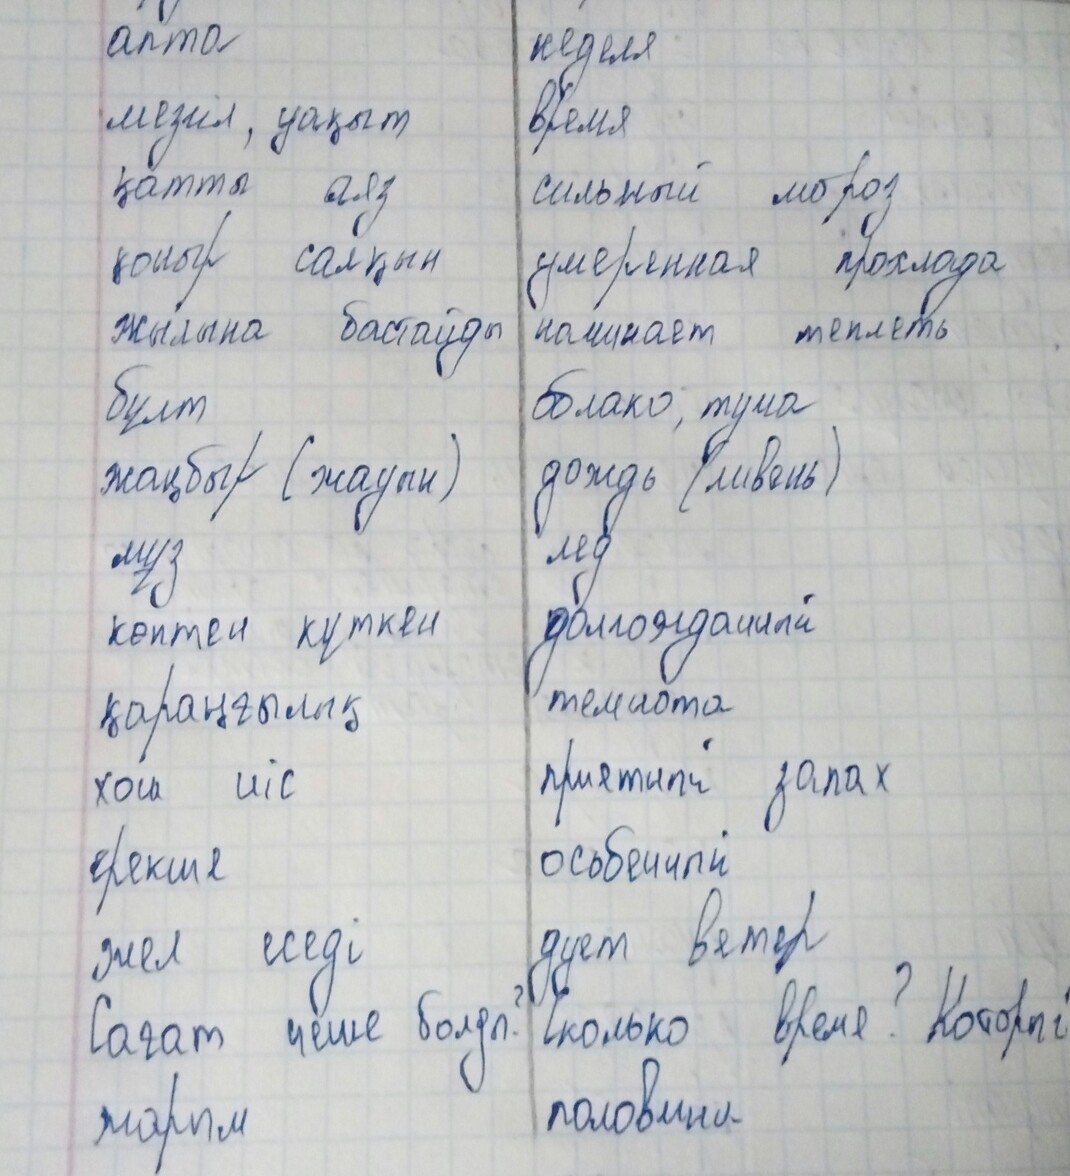 апта неделя
мезгіл, уақыт время
қатты аяз сильный мороз
қоңыр салқын умеренная прохлада
жылына бастайды начинает теплеть
бұлт облако, туча
жаңбыр (жауын) дождь (ливень)
мұз лед
көптен күткен долгожданный
қараңғылық темнота
хош иіс приятный запах
ерекше особенный
жел еседі дует ветер
Сағат неше болды? Сколько время? Который
жарым половина